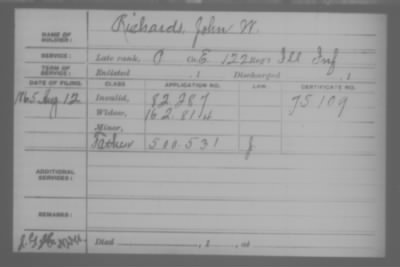 NAME OF SOLDIER: Richards, John W.
SERVICE: Late rank, P Co. E, 122 Reg't Ill Inf
TERM OF SERVICE: Enlisted , 1 Discharged , 1
DATE OF FILING. CLASS. APPLICATION NO. LAW. CERTIFICATE NO.
1865 Aug 12 Invalid, 82.287 75109
Widow, 162.814
Minor,
Father 500.531 J
ADDITIONAL SERVICES:
REMARKS:
Died , 1 , at